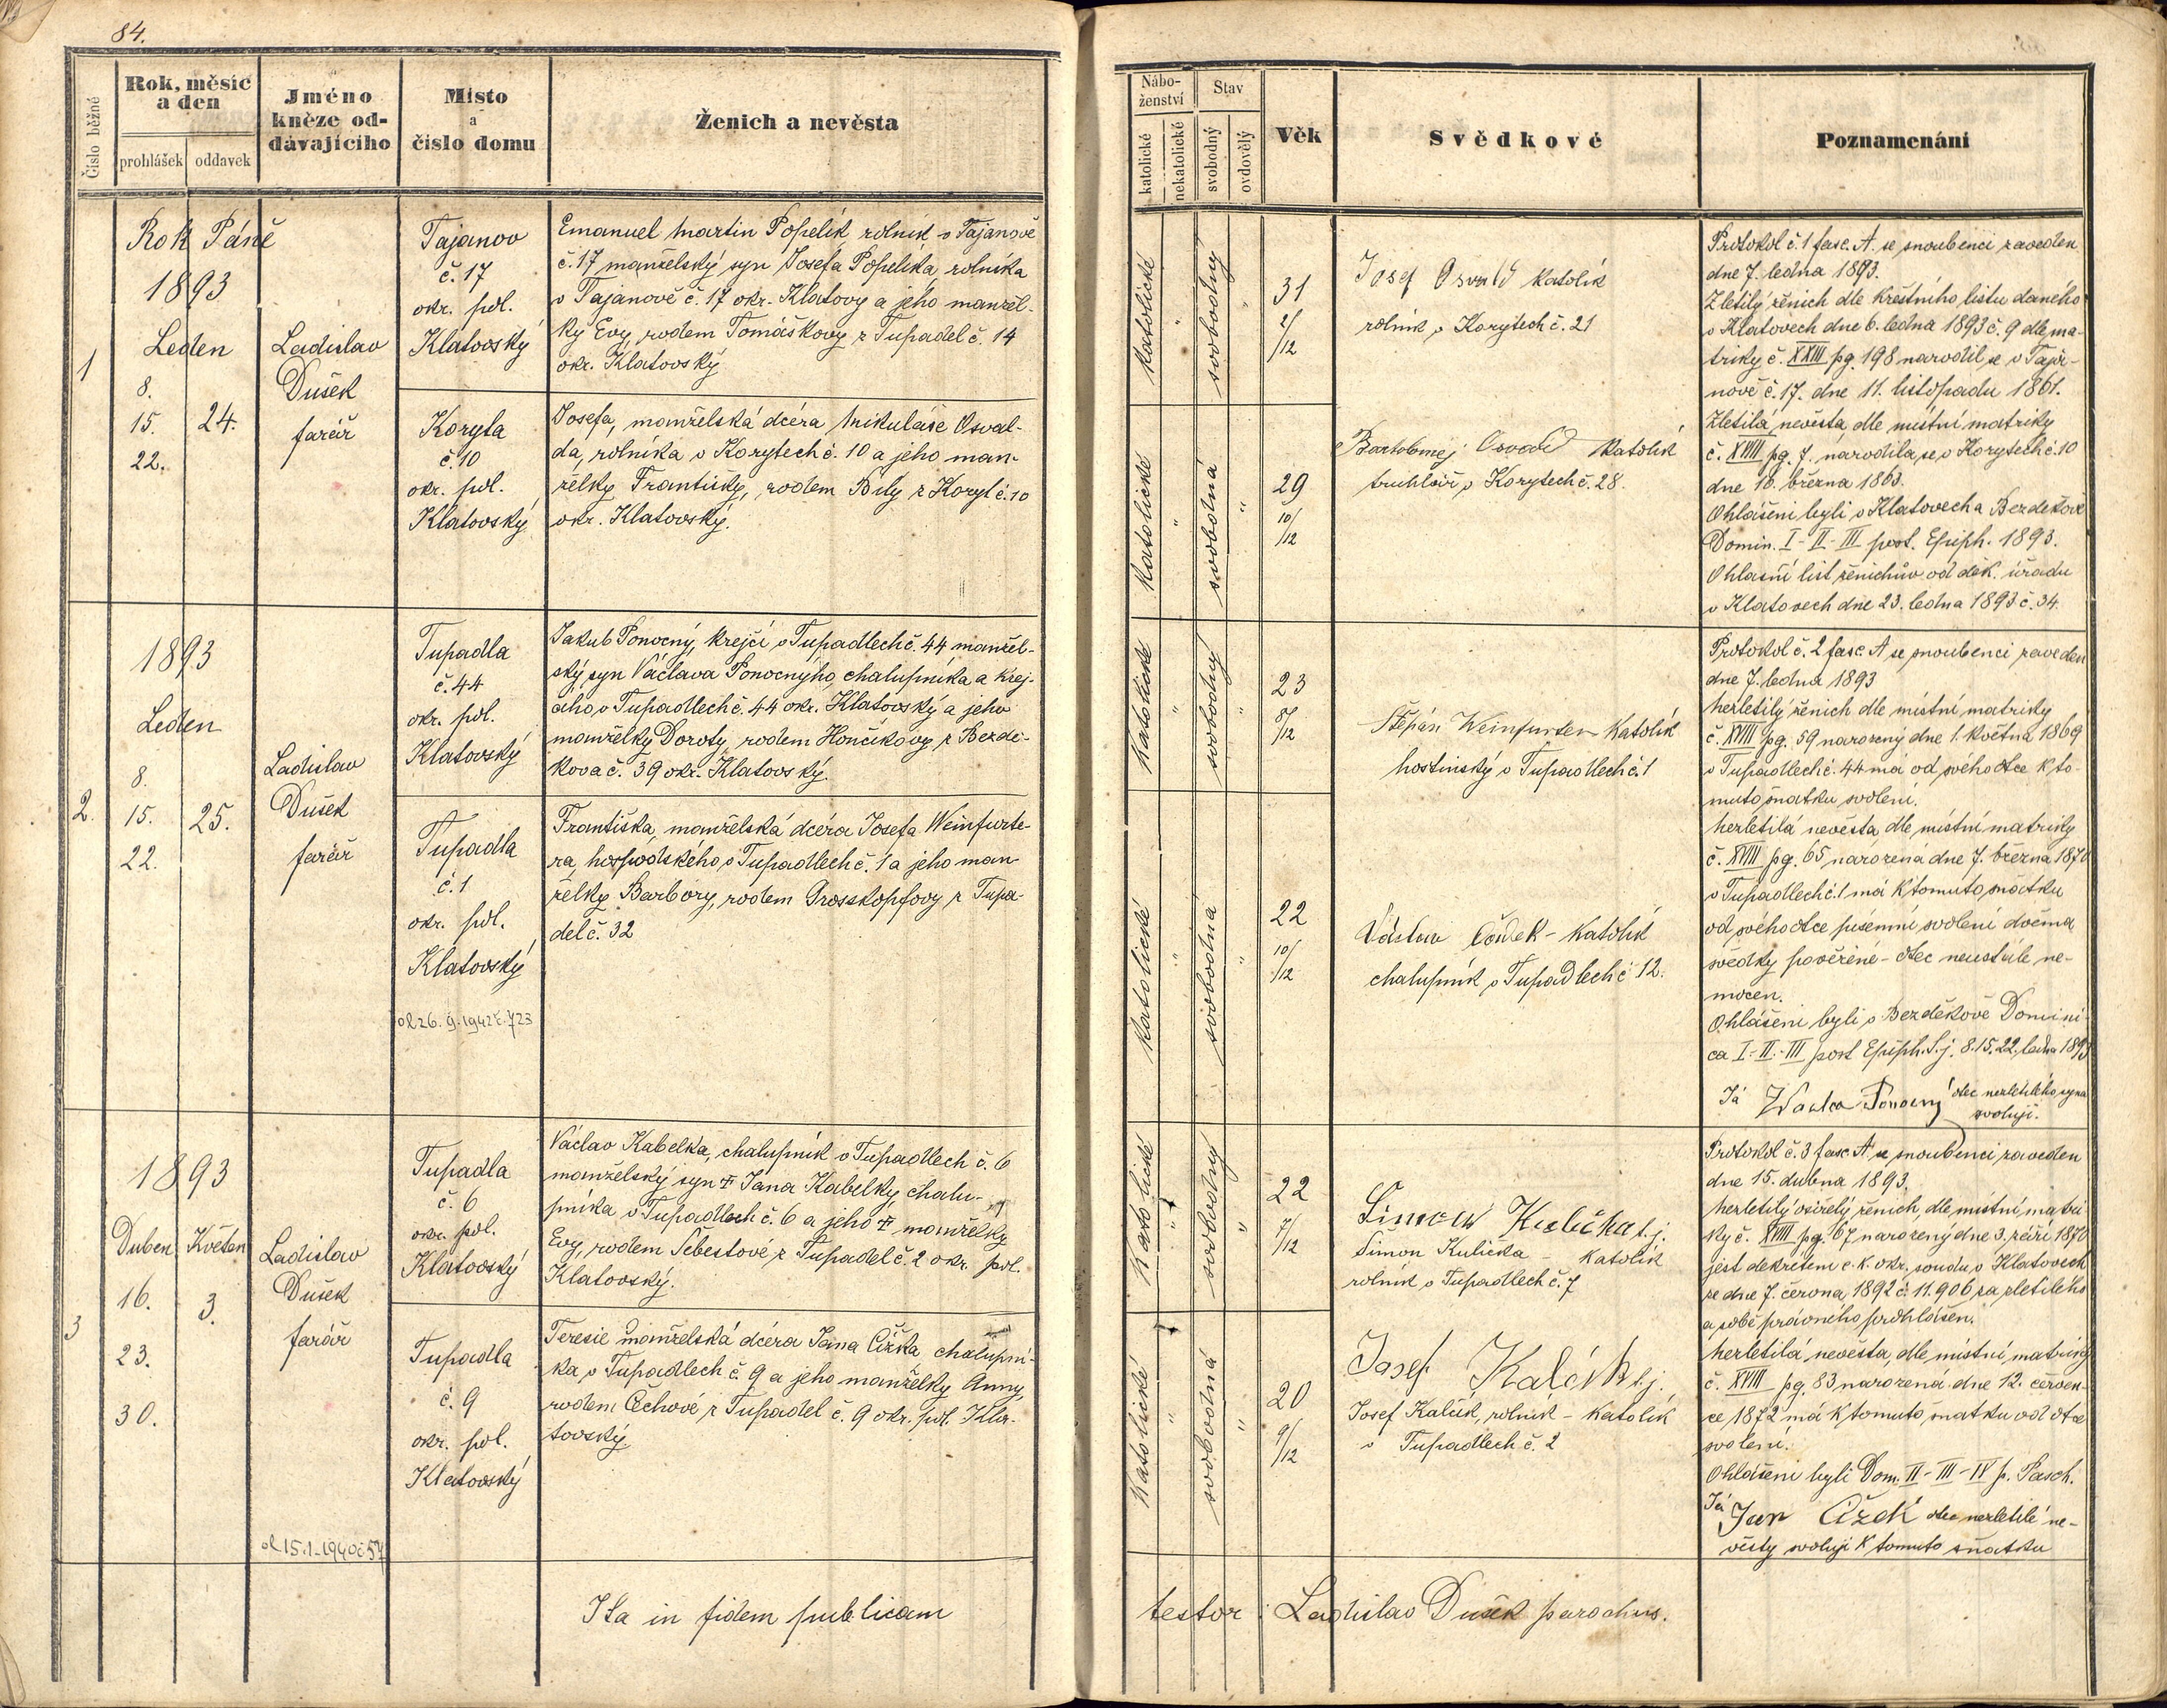 84.
Číslo běžné
Rok, měsíc
a den
prohlášek
oddavek
Jméno
kněze od-
dávajícího
Místo
a
číslo domu
Ženich a nevěsta
Nábo-
ženství
katolické
nekatolické
Stav
svobodný
ovdovělý
Věk
Svědkové
Poznamenání
1
Rok Páně
1893
Leden
8.
15. 24.
22.
Ladislav
Dušek
farář
Tajanov
č. 17
okr. pol.
Klatovský
Emanuel Martin Popelík, rolník v Tajanově
č. 17 manželský syn Josefa Popelíka, rolníka
v Tajanově č. 17 okr. Klatovy a jeho manžel-
ky Evy, rodem Tomáškovy z Tupadel č. 14
okr. Klatovský
katolické
"
svobodný
"
31
2/12
Josef Osvald katolík
rolník v Korytech č. 21
Koryta
č. 10
okr. pol.
Klatovský
Josefa, manželská dcéra Mikuláše Osval-
da, rolníka v Korytech č. 10 a jeho man-
želky Františky, rodem Bíly z Koryt č. 10
okr. Klatovský.
katolické
"
svobodná
"
29
10/12
Bartoloměj Osvald katolík
truhlář v Korytech č. 28.
Protokol č. 1 fasc. A. se snoubenci zaveden
dne 7. ledna 1893.
Zletilý ženich dle křestního listu daného
v Klatovech dne 6. ledna 1893 č. 9 dle ma-
triky č. XXIII pg. 198 narodil se v Taja-
nově č. 17. dne 11. listopadu 1861.
Zletilá nevěsta dle místní matriky
č. XVIII pg. 7. narodila se v Korytech č. 10
dne 16. března 1863.
Ohlášeni byli v Klatovech a Bezděkově
Domin. I - II - III post. Epiph. 1893.
Ohlašní list ženichův od děk. úřadu
v Klatovech dne 23. ledna 1893 č. 34.
2.
1893
Leden
8.
15. 25.
22.
Ladislav
Dušek
farář
Tupadla
č. 44
okr. pol.
Klatovský
Jakub Ponocný, krejčí v Tupadlech č. 44 manžel-
ský syn Václava Ponocnýho, chalupníka a krej-
čího v Tupadlech č. 44 okr. Klatovský a jeho
manželky Doroty, rodem Hončíkovy z Bezdě-
kova č. 39 okr. Klatovský.
katolické
"
svobodný
"
23
8/12
Štěpán Weinfurter katolík
hostinský v Tupadlech č. 1
Tupadla
č. 1
okr. pol.
Klatovský
ol 26. 9. 1942 č. 723
Františka, manželská dcéra Josefa Weinfurte-
ra, hospodského v Tupadlech č. 1 a jeho man-
želky Barbory, rodem Grosskopfovy z Tupa-
del č. 32
katolické
"
svobodná
"
22
10/12
Václav Čádek - katolík
chalupník v Tupadlech č. 12.
Protokol č. 2 fasc A se snoubenci zaveden
dne 7. ledna 1893
Nezletilý ženich dle místní matriky
č. XVIII pg. 59 narozený dne 1. května 1869
v Tupadlech č. 44 má od svého otce k to-
muto sňatku svolení.
Nezletilá nevěsta dle místní matriky
č. XVIII pg. 65 narozená dne 7. března 1870
v Tupadlech č. 1 má k tomuto sňatku
od svého otce písemní svolení dvěma
svědky pověřené - otec neustále ne-
mocen.
Ohlášeni byli v Bezděkově Domini-
ca I. II. III post Epiph. t. j. 8. 15. 22. ledna 1893
Já Ponocný otec nezletilého syna
svoluji.
3
1893
Duben Květen
16. 3.
23.
30.
Ladislav
Dušek
farář
ol 15.1.1940 č 57
Tupadla
č. 6
okr. pol.
Klatovský
Václav Kabelka, chalupník v Tupadlech č. 6
manželský syn † Jana Kabelky, chalu-
pníka v Tupadlech č. 6 a jeho † manželky
Evy, rodem Šebestové z Tupadel č. 2 okr. pol.
Klatovský.
Katolické
"
svobodný
"
22
7/12
Šimon Kulička t. j.
Šimon Kulička - katolík
rolník v Tupadlech č. 7
Tupadla
č. 9
okr. pol.
Klatovský
Teresie manželská dcéra Jana Čížka chalupní-
ka v Tupadlech č. 9 a jeho manželky Anny,
rodem Čechové z Tupadel č. 9 okr. pol. Kla-
tovský
Katolické
"
svobodná
"
20
9/12
Josef Kalčík t. j.
Josef Kalčík, rolník - katolík
v Tupadlech č. 2
Protokol č. 3 fasc A se snoubenci zaveden
dne 15. dubna 1893.
Nezletilý osiřelý ženich, dle místní matri-
ky č. XVIII pg. 67 narozený dne 3. září 1870
jest dekretem c. k. okr. soudu v Klatovech
ze dne 7. června 1892 č. 11.906 za zletilého
a sobě právného prohlášen.
Nezletilá nevěsta, dle místní matriky
č. XVIII pg. 83 narozená dne 12. červen-
ce 1872 má k tomuto sňatku od otce
svolení.
Ohlášeni byli Dom. II - III - IV p. Pasch.
Já Jan Čížek otec nezletilé ne-
věsty svoluji k tomuto sňatku
Ita in fidem publicam
testor: Ladislav Dušek parochus.